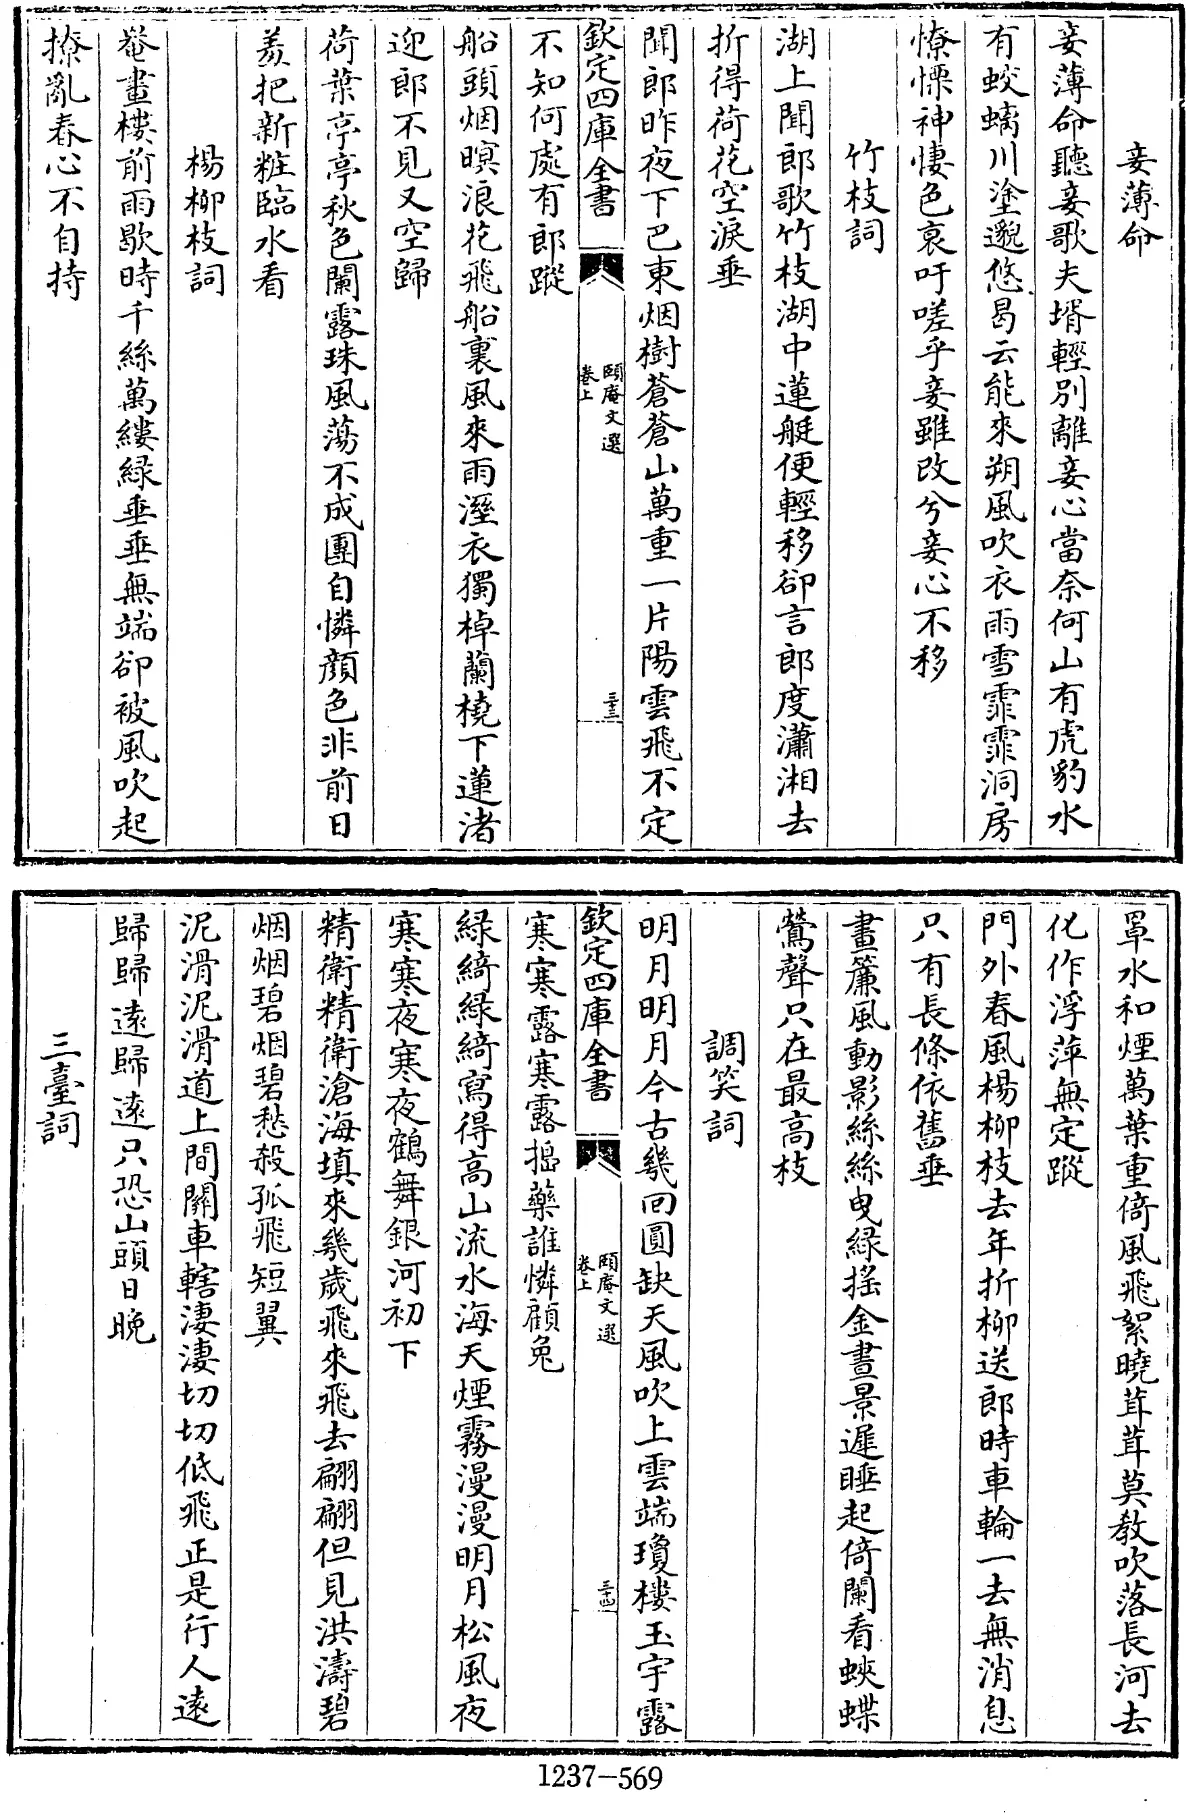 妾薄命
妾薄命聽妾歌夫壻輕别離妾心當奈何山有虎豹水
有蛟螭川塗邈悠悠曷云能來朔風吹衣雨雪霏霏洞房
憭慄神悽色哀吁嗟乎妾雖改兮妾心不移
竹枝詞
湖上聞郎歌竹枝湖中蓮艇便輕移卻言郎度瀟湘去
折得荷花空淚垂
聞郎昨夜下巴東烟樹蒼蒼山萬重一片陽雲飛不定
欽定四庫全書
頤庵文選
卷上
三十三
不知何處有郎蹤
船頭烟暝浪花飛船裏風來雨溼衣獨棹蘭橈下蓮渚
迎郎不見又空歸
荷葉亭亭秋色闌露珠風蕩不成團自憐顔色非前日
羞把新粧臨水看
楊柳枝詞
罨畫樓前雨歇時千絲萬縷緑垂垂無端卻被風吹起
撩亂春心不自持
罩水和煙萬葉重倚風飛絮曉茸茸莫教吹落長河去
化作浮萍無定蹤
門外春風楊柳枝去年折柳送郎時車輪一去無消息
只有長條依舊垂
畫簾風動影絲絲曵緑揺金晝景遲睡起倚闌看蛺蝶
鶯聲只在最高枝
調笑詞
明月明月今古幾回圓缺天風吹上雲端瓊樓玉宇露
欽定四庫全書
頤庵文選
卷上
三十四
寒寒露寒露搗藥誰憐顧兔
緑綺緑綺寫得高山流水海天煙霧漫漫明月松風夜
寒寒夜寒夜鶴舞銀河初下
精衛精衛滄海填來幾歲飛來飛去翩翩但見洪濤碧
烟烟碧烟碧愁殺孤飛短翼
泥滑泥滑道上間關車轄淒淒切切低飛正是行人逺
歸歸逺歸逺只恐山頭日晚
三臺詞
1237-569